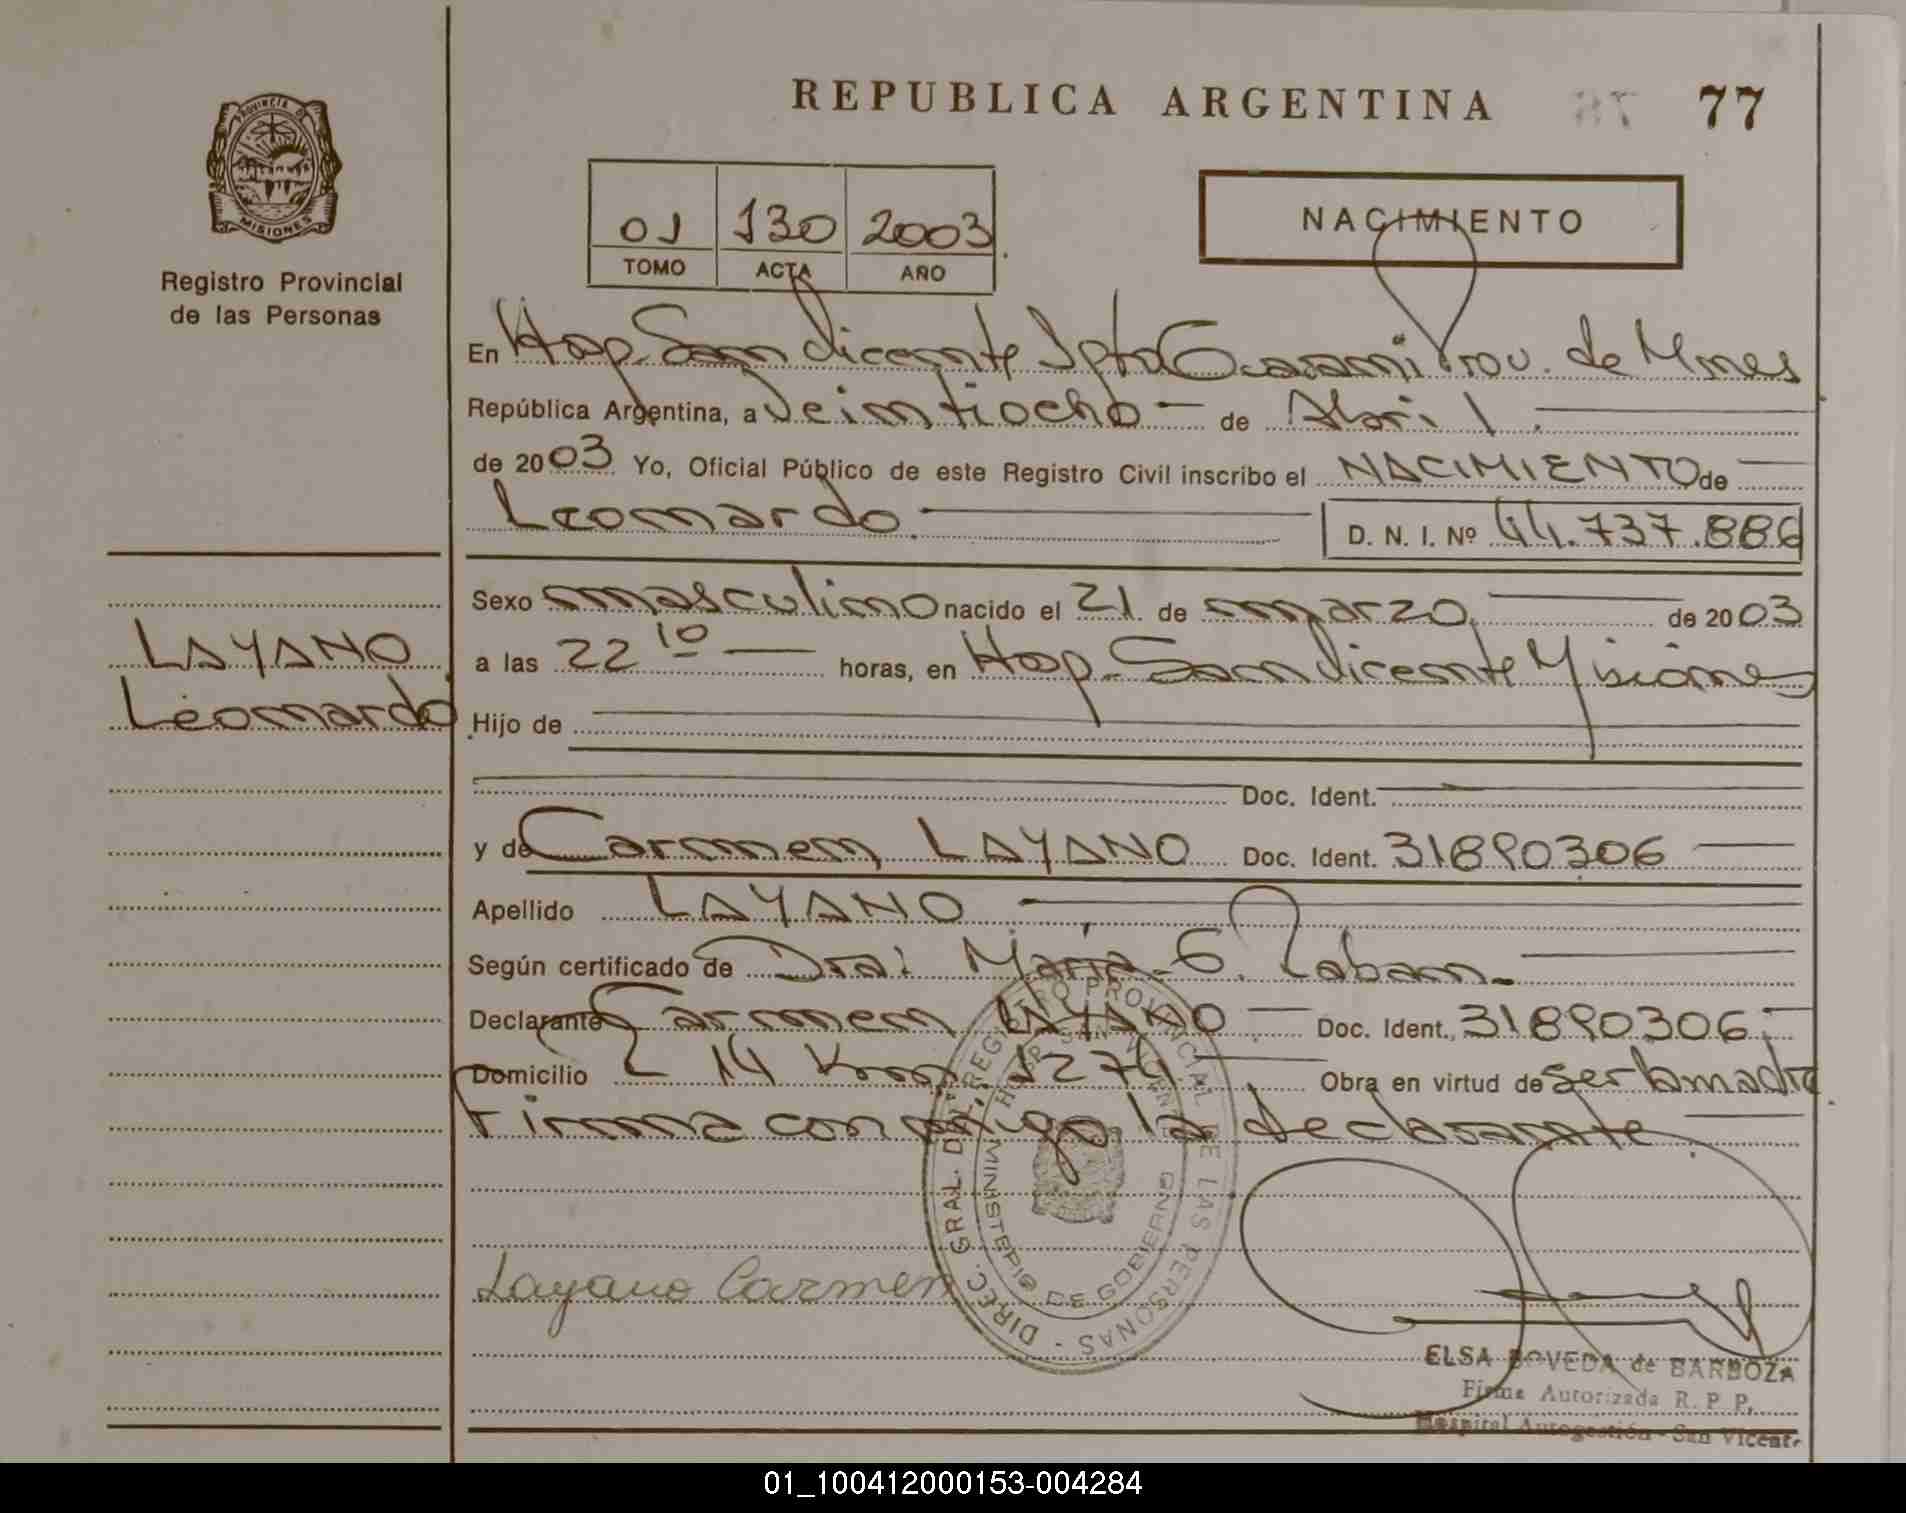 REPUBLICA ARGENTINA 77
PROVINCIA DE MISIONES
Registro Provincial
de las Personas
01 130 2003
TOMO ACTA AÑO
NACIMIENTO
En Hosp. San Vicente Dpto Guaraní Prov. de Mnes
República Argentina, a Veintiocho de Abril
de 2003 Yo, Oficial Público de este Registro Civil inscribo el NACIMIENTO de
Leonardo D. N. I. Nº 44.737.886
LAYANO
Leonardo
Sexo masculino nacido el 21 de marzo de 2003
a las 22 10 horas, en Hosp. San Vicente Misiones
Hijo de
Doc. Ident.
y de Carmen LAYANO Doc. Ident. 31890306
Apellido LAYANO
Según certificado de Dra: María G.
Declarante Carmen LAYANO Doc. Ident. 31890306
Domicilio 14 Km. 1274 Obra en virtud de ser la madre
Firma conmigo la declarante
DIREC. GRAL. DEL REGISTRO PROVINCIAL DE LAS PERSONAS
HOSP. SAN VICENTE
MINISTERIO DE GOBIERNO
Layano Carmen
ELSA BOVEDA de BARBOZA
Firma Autorizada R. P. P.
Hospital Autogestión - San Vicente
01_100412000153-004284